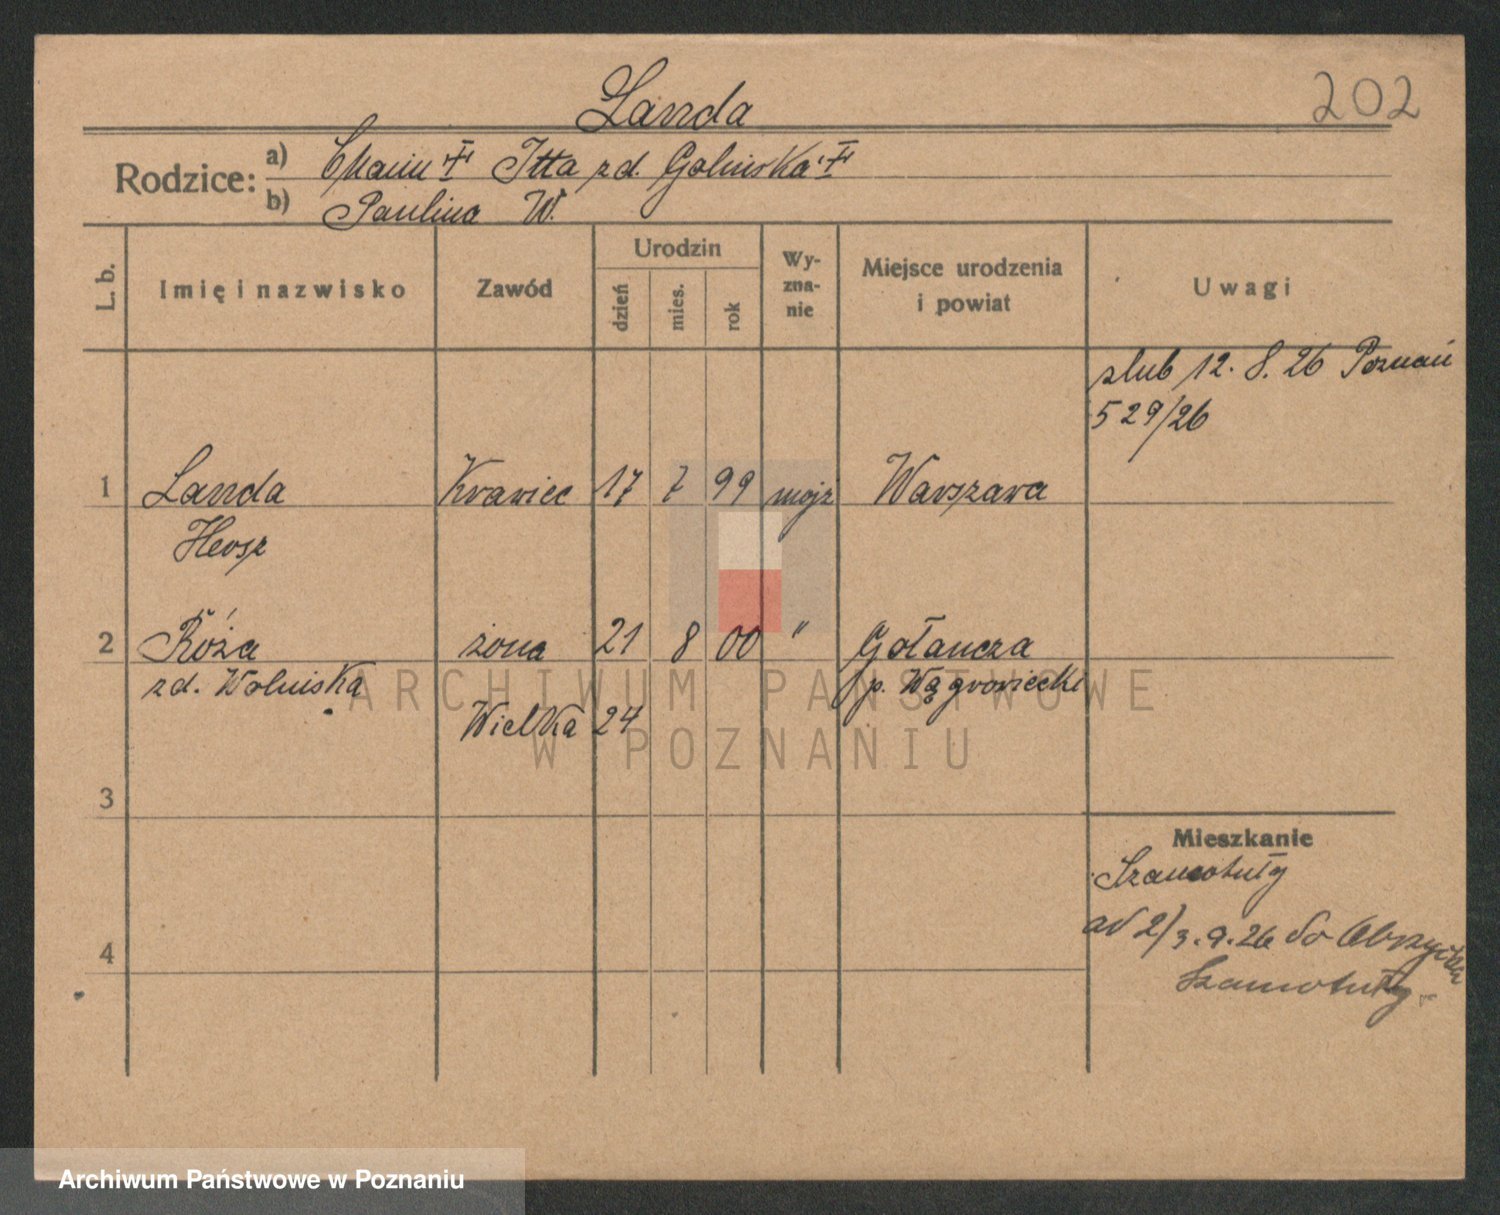 202
Landa
Rodzice: a) Chaim ✝ Itta zd. Golińska ✝
b) Paulina W.
L. b. Imię i nazwisko Zawód Urodzin dzień mies. rok Wy-zna-nie Miejsce urodzenia i powiat Uwagi
ślub 12. 8. 26 Poznań
529/26
1 Landa Krawiec 17 7 99 mojż Warszawa
Hersz
2 Róża żona 21 8 00 " Gołańcza
zd. Wolniska p. Wągrowiecki
Wielka 24
3
Mieszkanie
Szamotuły
4 ad 2/ 3.9.26 do Obrzycka
Szamotuły
ARCHIWUM PAŃSTWOWE
W POZNANIU
Archiwum Państwowe w Poznaniu